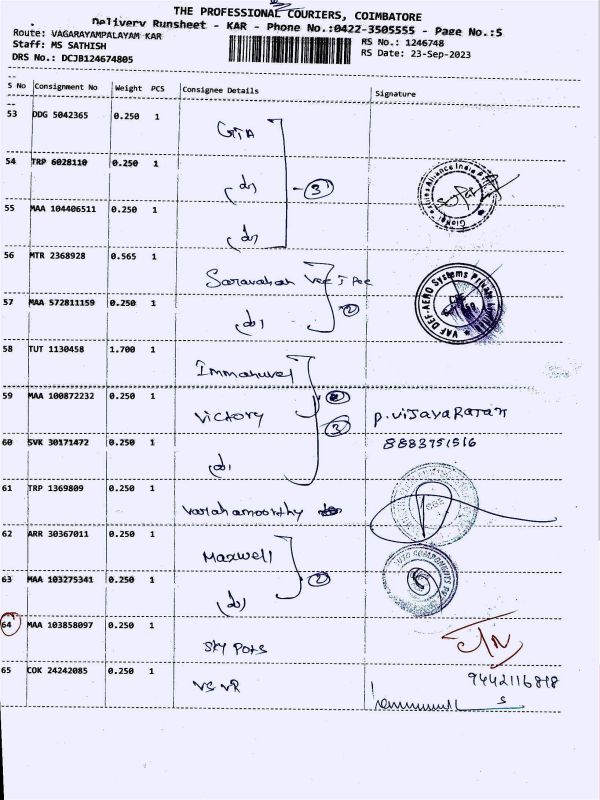 THE PROFESSIONAL COURIERS, COIMBATORE
Delivery Runsheet - KAR - Phone No.:0422-3505555 - Page No.:5
Route: VAGARAYAMPALAYAM KAR
RS No.: 1246748
Staff: MS SATHISH
RS Date: 23-Sep-2023
DRS No.: DCJB124674805
S No Consignment No Weight PCS Consignee Details Signature
53 DDG 5042365 0.250 1 GTA
54 TRP 6028110 0.250 1 do 3
55 MAA 104406511 0.250 1 do
56 MTR 2368928 0.565 1 Saravanan Vee J Pee
57 MAA 572811159 0.250 1 do 2
VAF DEF-AERO Systems Private Limited
58 TUT 1130458 1.700 1 Immanuvel
59 MAA 100872232 0.250 1 Victory P. VIJAYARAJAN
3 8883751516
60 SVK 30171472 0.250 1 do
61 TRP 1369809 0.250 1 Varahamoorthy
62 ARR 30367011 0.250 1 Maxwell
63 MAA 103275341 0.250 1 do 2
64 MAA 103858097 0.250 1 SKY Pots
65 COK 24242085 0.250 1 VS VR 9442116818